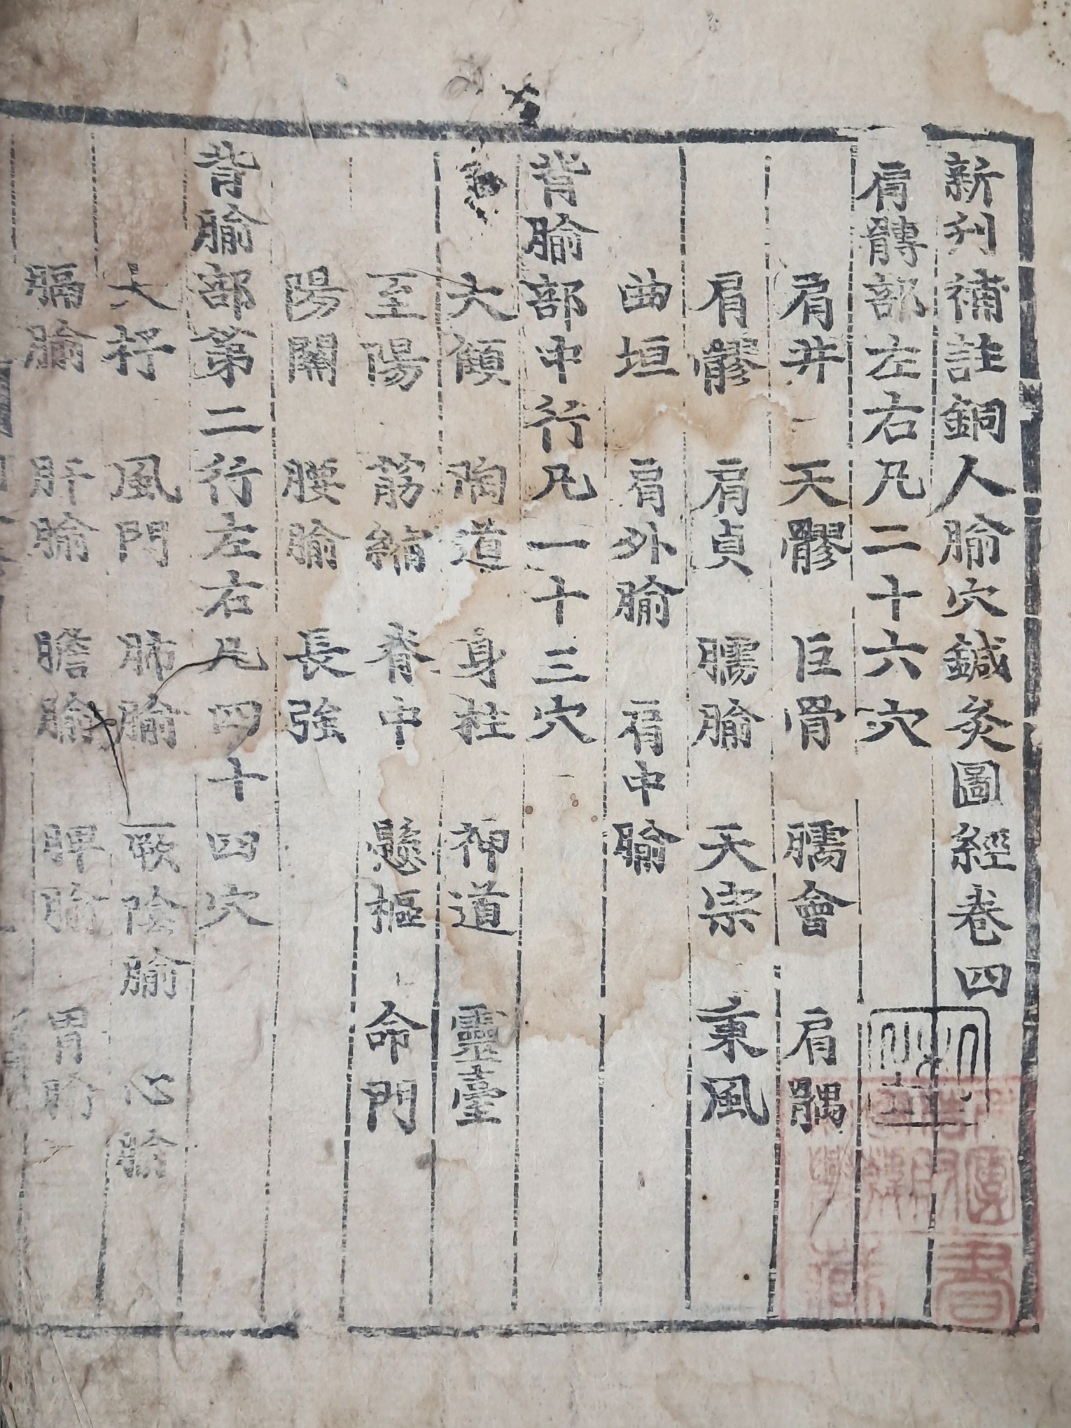 新刋補註銅人腧穴鍼灸圖經卷四
肩髆部左右凡二十六穴
肩井 天髎 巨骨 臑會 肩髃
肩髎 肩貞 臑腧 天宗 秉風
曲垣 肩外腧 肩中腧
背腧部中行凡一十三穴
大傾 陶道 身柱 神道 靈臺
至陽 筋縮 脊中 懸樞 命門
陽關 腰腧 長強
背腧部第二行左右凡四十四穴
大杼 風門 肺腧 厥陰腧 心腧
膈腧 肝腧 膽腧 脾腧 胃腧